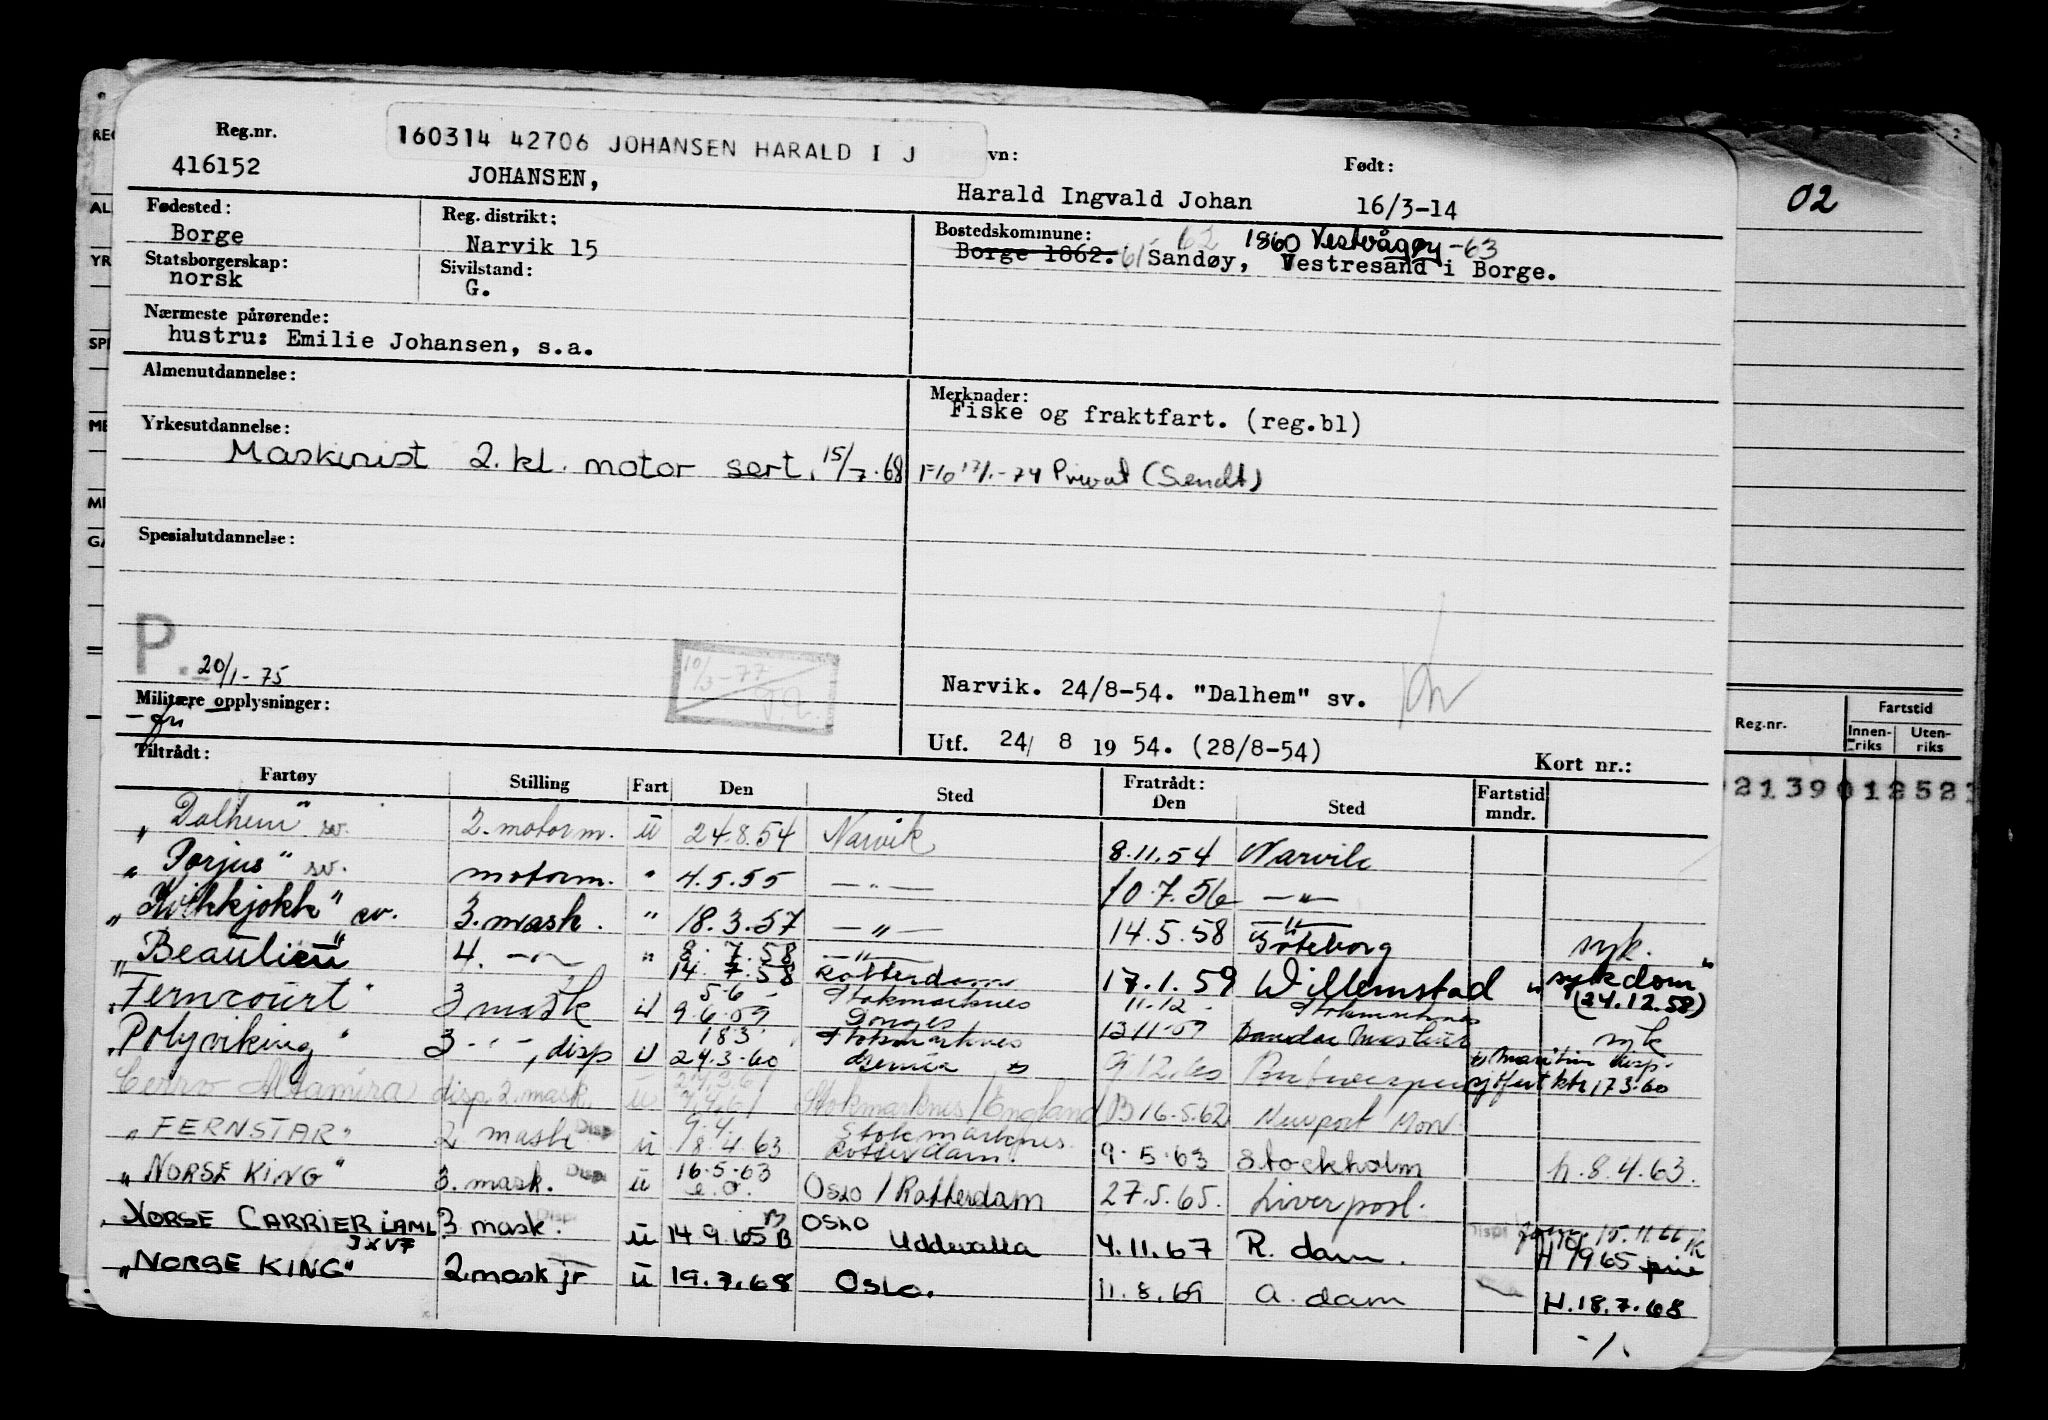 160314 42706 JOHANSEN HARALD I J
Reg.nr. vn: Født:
416152 JOHANSEN, Harald Ingvald Johan 16/3-14
02
Fødested: Reg. distrikt: Bostedskommune:
Borge Narvik 15 62 1860 Vestvågøy -63
Borge 1862. 61 Sandøy, Vestresand i Borge.
Statsborgerskap: Sivilstand:
norsk G.
Nærmeste pårørende:
hustru: Emilie Johansen, s.a.
Almenutdannelse: Merknader:
Fiske og fraktfart. (reg.bl)
Yrkesutdannelse:
Maskinist 2. kl. motor sert. 15/7.68
-74 Privat (Sendt)
Spesialutdannelse:
P.
20/1-75
10/3-77
Narvik. 24/8-54. "Dalhem" sv.
Militære opplysninger:
-fri
Utf. 24/ 8 19 54. (28/8-54) Kort nr.:
Reg.nr. Fartstid
Innen-riks Uten-riks
Tiltrådt: Fratrådt:
Fartøy Stilling Fart Den Sted Den Sted Fartstid mndr.
21390 12 52
"Dalhem" sv. 2. motorm. u 24.8.54 Narvik 8.11.54 Narvik
"Porjus" sv. motorm. " 4.5.55 —"— 10.7.56 —"—
"Kvikkjokk" sv. 3. mask. " 18.3.57 —"— 14.5.58 —"— Göteborg syk.
"Beaulieu" 4. —"— " 8.7.58 —"—
14.7.58 Rotterdam 17.1.59 Willemstad "sykdom" (24.12.58)
"Ferncourt" 3 mask u 5.6 Stokmarknes 11.12 Stokmarknes
9.6.59 Donges 13.11.59 syk
"Polyviking" 3 —"—, disp u 18.3 Stokmarknes
24.3.60 9.12.60 17.3.60
Cerro Altamira disp 2. mask. u Stokmarknes/England 16.5.62 Newport Mon.
"FERNSTAR" 2. mask Disp u 9.4. Stokmarknes
18.4.63 Rotterdam. 9.5.63 Stockholm h. 8.4.63.
"NORSE KING" 3. mask. Disp u 16.5.63 Oslo / Rotterdam 27.5.65. Liverpool.
NORSE CARRIER LAML 3 mask. Disp u 14.9.65 B OSLO Uddevalla 4.11.67 R. dam. Disp 15.11.66
JXV7
"NORSE KING" 2. mask jr u 19.7.68 Oslo. 11.8.69 A. dam H. 18.7.68
-/.